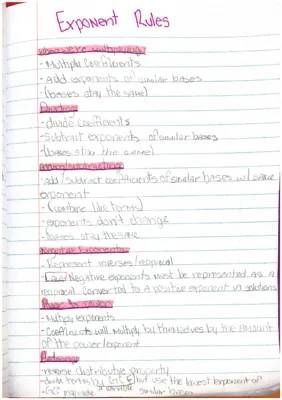 Exponent Rules
when we're multiplying
- Multiply Coefficients
- Add exponents of similar bases
- (bases stay the same)
Dividing
- divide Coefficients
- Subtract exponents of similar bases
- (bases stay the same)
- add/subtract coefficients of similar bases w/ same
exponent
- (combine like terms)
- exponents don't change
- bases stay the same
Negative Exponents
- Represent inverses/reciprocal
- Negative exponents must be represented as a
reciprocal converted to a positive exponent in solutions
Power to Powers
- Multiply exponents
- Coefficients will multiply by themselves by the amount
of the power/exponent
Factoring
- reverse distributive property
- divide terms by GCF but use the lowest exponent of
similar bases